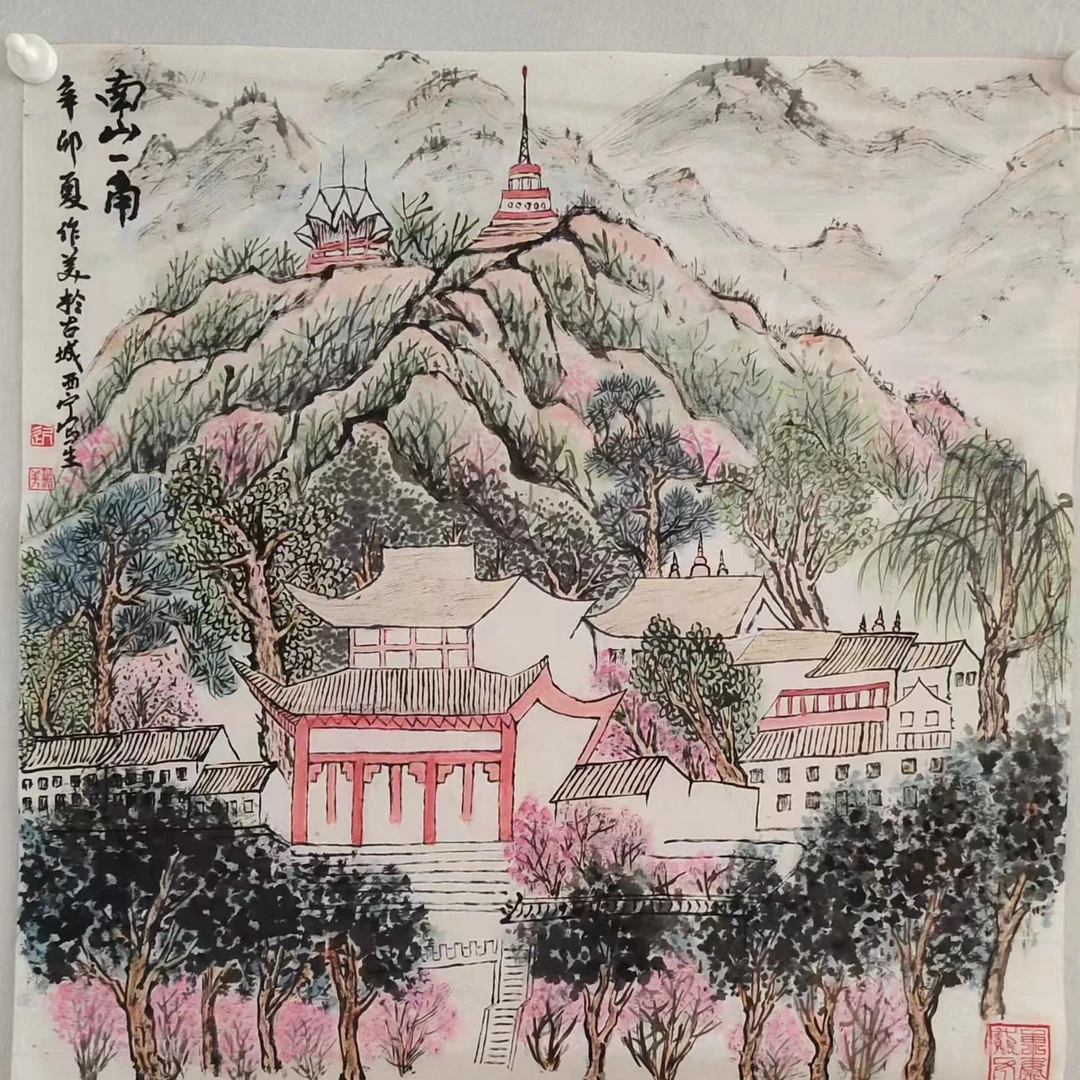 南山一角
辛卯夏作美於古城西宁写生